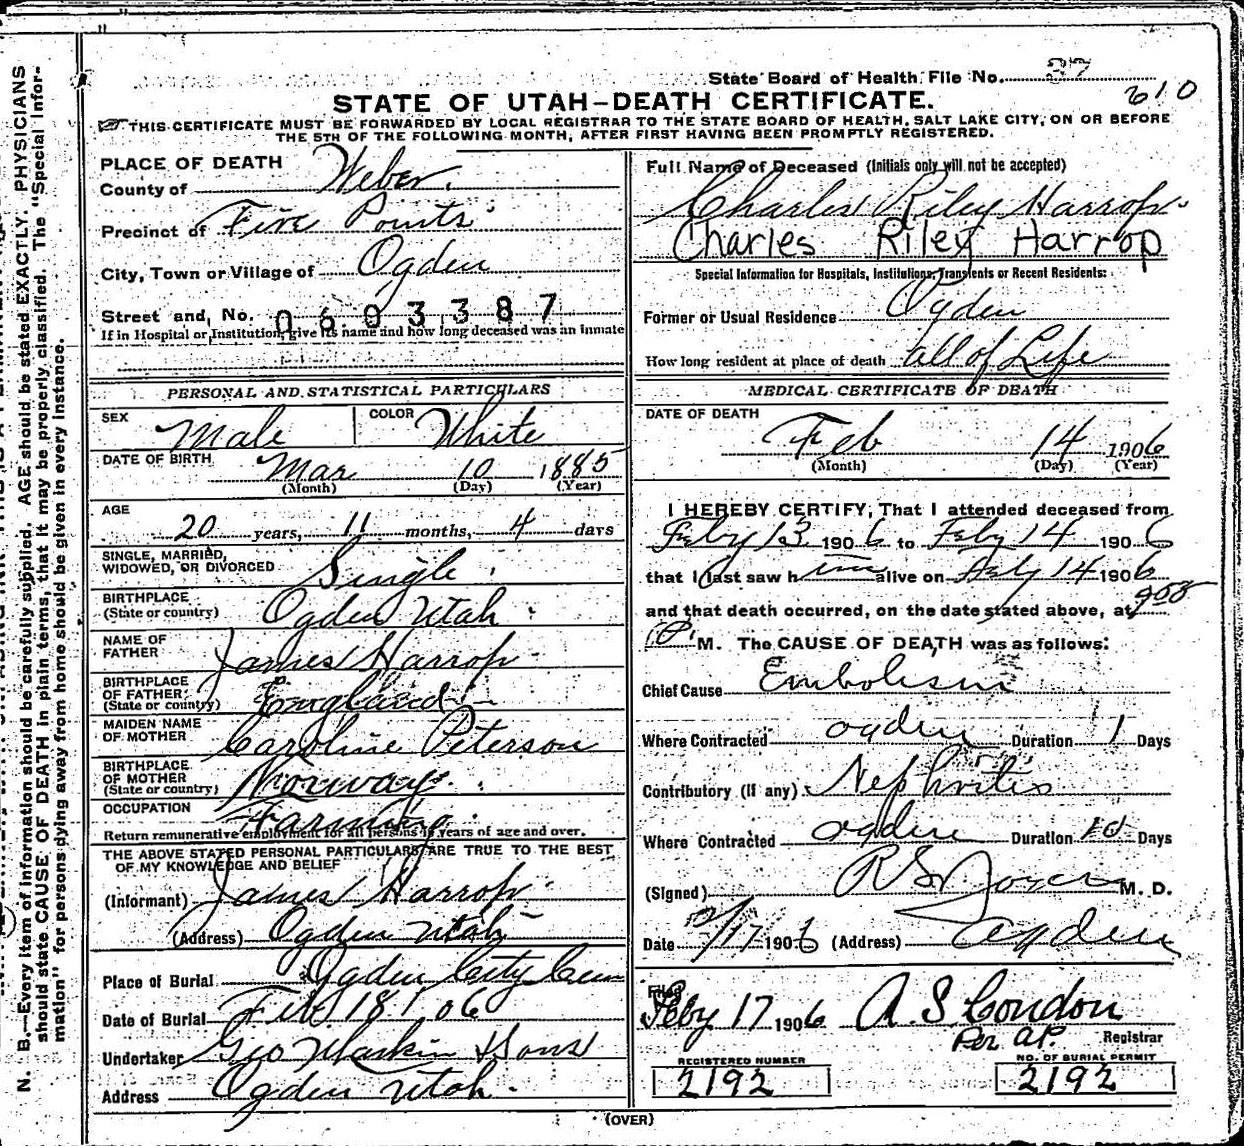 State Board of Health File No. 27
610
STATE OF UTAH—DEATH CERTIFICATE.
THIS CERTIFICATE MUST BE FORWARDED BY LOCAL REGISTRAR TO THE STATE BOARD OF HEALTH, SALT LAKE CITY, ON OR BEFORE
THE 5TH OF THE FOLLOWING MONTH, AFTER FIRST HAVING BEEN PROMPTLY REGISTERED.
PLACE OF DEATH
County of Weber.
Precinct of Five Points
City, Town or Village of Ogden
Street and No. 0603387
If in Hospital or Institution, give its name and how long deceased was an inmate
PERSONAL AND STATISTICAL PARTICULARS
SEX Male COLOR White
DATE OF BIRTH Mar 10 1885
(Month) (Day) (Year)
AGE
20 years, 11 months, 4 days
SINGLE, MARRIED,
WIDOWED, OR DIVORCED Single.
BIRTHPLACE
(State or country) Ogden Utah
NAME OF
FATHER James Harrop
BIRTHPLACE
OF FATHER
(State or country) England
MAIDEN NAME
OF MOTHER Caroline Peterson
BIRTHPLACE
OF MOTHER
(State or country) Norway
OCCUPATION Farming
Return remunerative employment for all persons 10 years of age and over.
THE ABOVE STATED PERSONAL PARTICULARS ARE TRUE TO THE BEST
OF MY KNOWLEDGE AND BELIEF
(Informant) James Harrop
(Address) Ogden Utah
Place of Burial Ogden City Cem
Date of Burial Feb 18 / 06
Undertaker Geo & Sons
Address Ogden Utah.
Full Name of Deceased (Initials only will not be accepted)
Charles Riley Harrop.
Charles Riley Harrop
Special Information for Hospitals, Institutions, Transients or Recent Residents:
Former or Usual Residence Ogden
How long resident at place of death all of Life
MEDICAL CERTIFICATE OF DEATH
DATE OF DEATH
Feb 14 1906
(Month) (Day) (Year)
I HEREBY CERTIFY, That I attended deceased from
Feby 13 1906 to Feby 14 1906
that I last saw him alive on Feby 14 1906
and that death occurred, on the date stated above, at 9 00
P. M. The CAUSE OF DEATH was as follows:
Chief Cause Embolism
Where Contracted Ogden Duration 1 Days
Contributory (If any) Nephritis
Where Contracted Ogden Duration 10 Days
(Signed) R S Joyce M. D.
Date 2/17 1906 (Address) Ogden
Filed
Feby 17 1906 A. S Condon
Per A.P. Registrar
REGISTERED NUMBER
2192
NO. OF BURIAL PERMIT
2192
(OVER)
N. B.—Every item of information should be carefully supplied. AGE should be stated EXACTLY. PHYSICIANS
should state CAUSE OF DEATH in plain terms, that it may be properly classified. The "Special Infor-
mation" for persons dying away from home should be given in every instance.